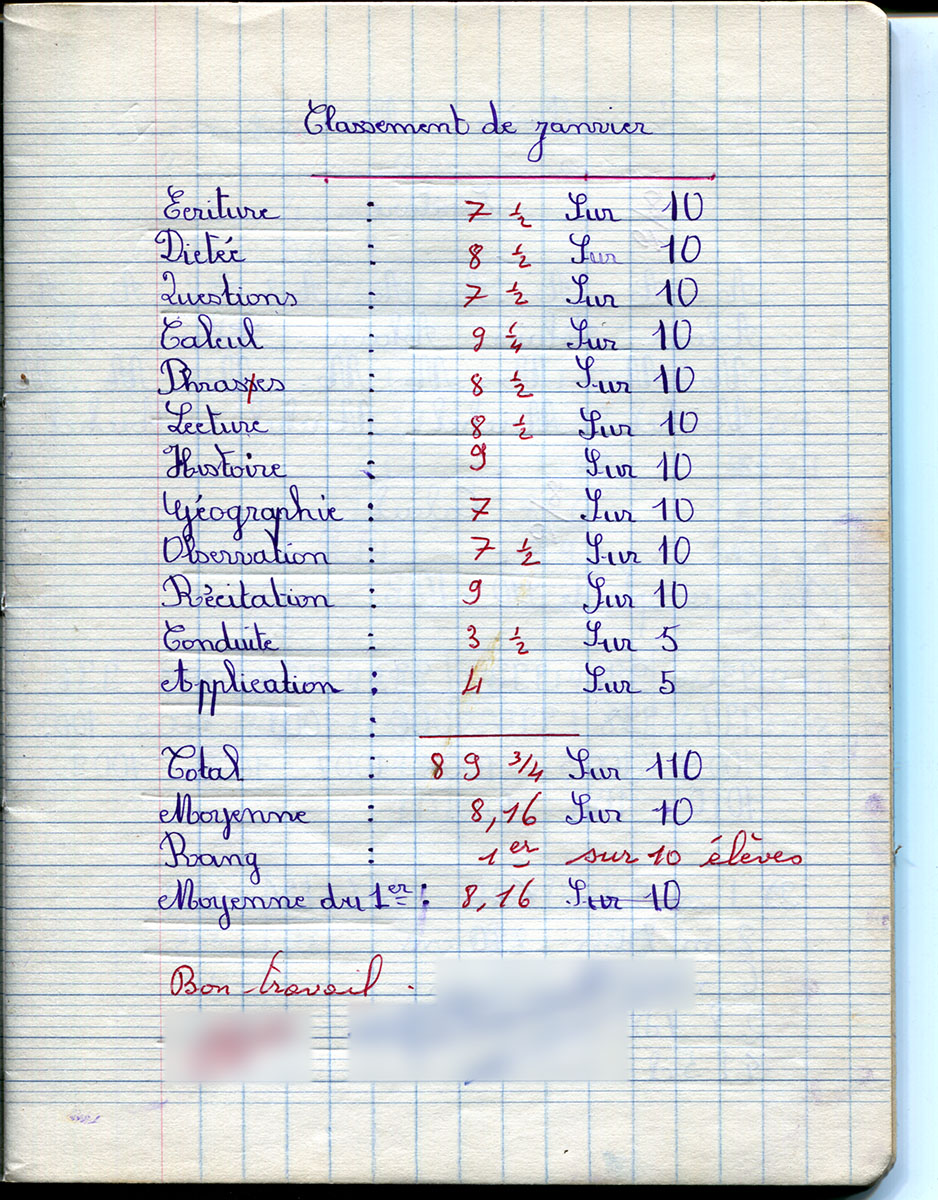 Classement de janvier
Ecriture : 7 ½ Sur 10
Dictée : 8 ½ Sur 10
Questions : 7 ½ Sur 10
Calcul : 9 ¼ Sur 10
Phrases : 8 ½ Sur 10
Lecture : 8 ½ Sur 10
Histoire : 9 Sur 10
Géographie : 7 Sur 10
Observation : 7 ½ Sur 10
Récitation : 9 Sur 10
Conduite : 3 ½ Sur 5
Application : 4 Sur 5
:
Total : 89 3/4 Sur 110
Moyenne : 8,16 Sur 10
Rang : 1er sur 10 élèves
Moyenne du 1er : 8,16 Sur 10
Bon travail.